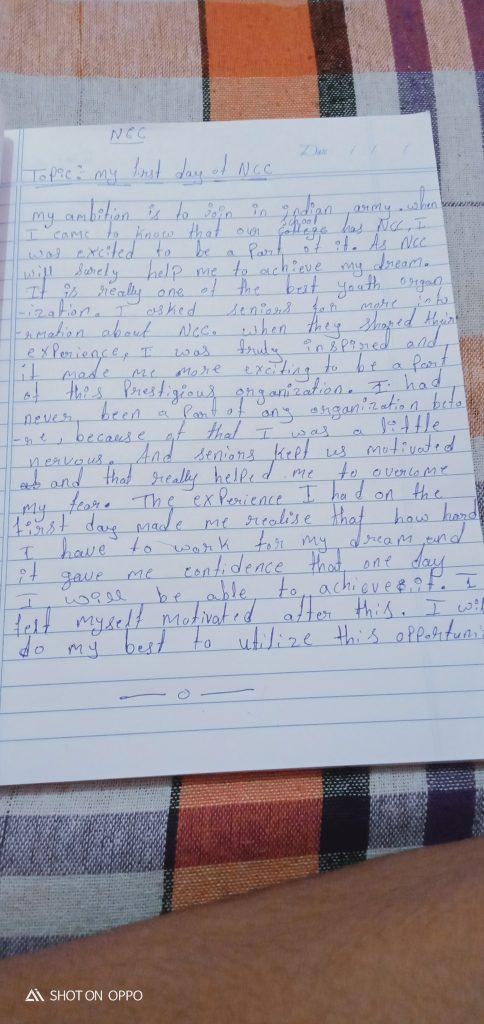 NCC
Date / / /
Topic:- my first day of NCC
my ambition is to join in indian army. when
I came to know that our college has NCC, I
school
was excited to be a part of it. As NCC
will surely help me to achieve my dream.
It is really one of the best youth organ
-ization. I asked seniors for more info
-rmation about NCC. when they shared their
experience, I was truly inspired and
it made me more exciting to be a part
of this prestigious organization. I had
never been a part of any organization befo
-re, because of that I was a little
nervous. And seniors kept us motivated
and that really helped me to overcome
my fear. The experience I had on the
first day made me realise that how hard
I have to work for my dream, and
it gave me confidence that one day
I will be able to achieve it. I
felt myself motivated after this. I wil
do my best to utilize this opportuni
— 0 —
SHOT ON OPPO